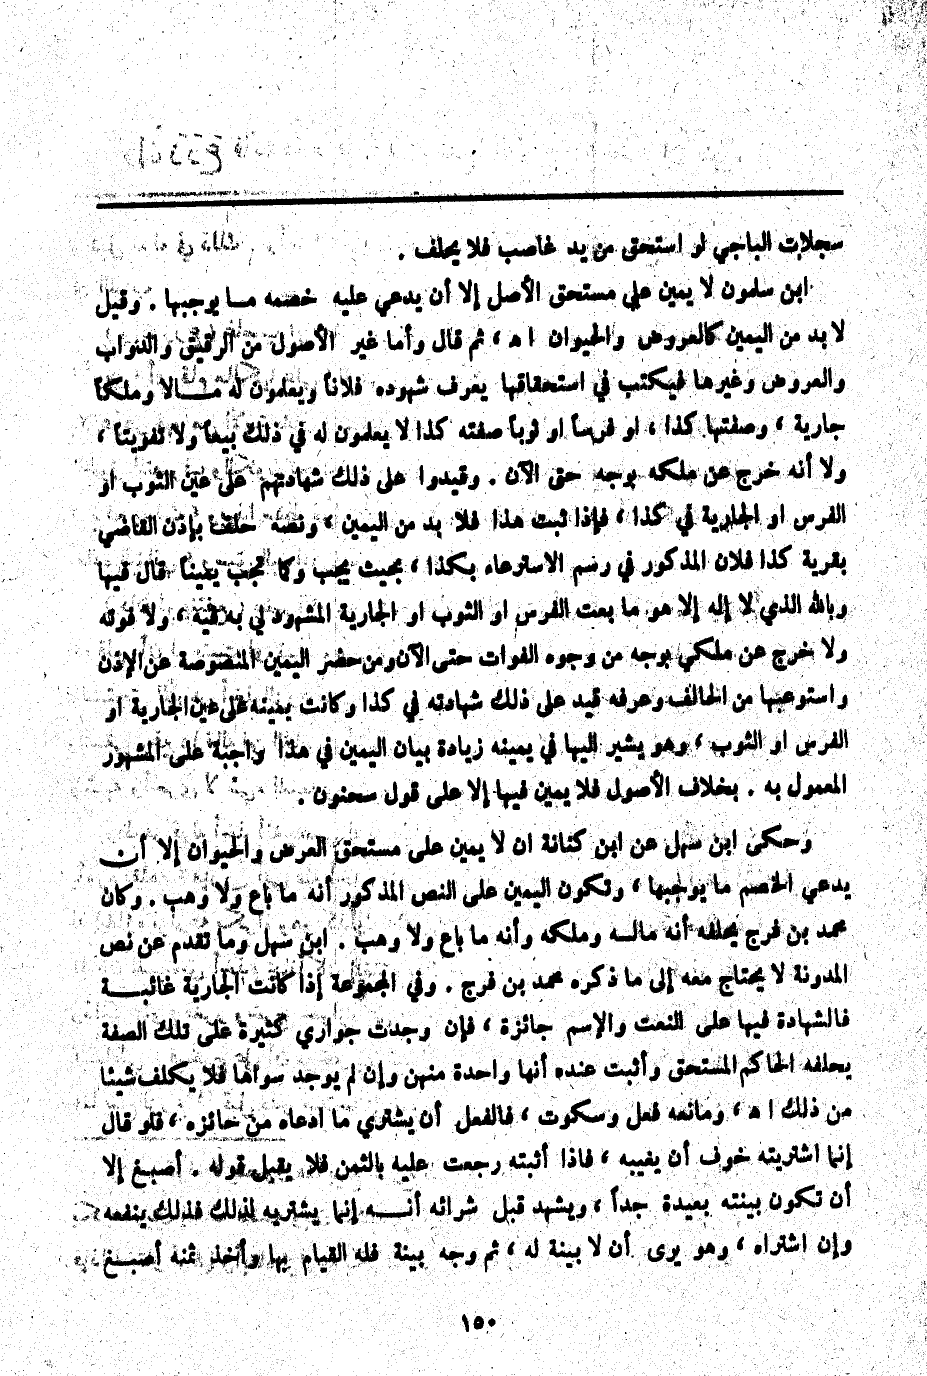 سجلات الباجي لو استحق من يد غاصب فلا يحلف .
ابن سلمون لا يمين على مستحق الأصل إلا أن يدعي عليه خصمه مـا يوجبها . وقيل
لا بد من اليمين كالعروض والحيوان ا ه ، ثم قال وأما غير الأصول من الرقيق والدواب
والعروض وغيرها فيكتب في استحقاقها يعرف شهوده فلاناً ويعلمون له مـــالا وملكاً
جارية ، وصفتها كذا ، او فرساً او ثوباً صفته كذا لا يعلمون له في ذلك بيعاً ولا تفويتاً ،
ولا أنه خرج عن ملكه بوجه حتى الآن . وقيدوا على ذلك شهادتهم على عين الثوب او
الفرس او الجارية في كذا ، فإذا ثبت هذا فلا بد من اليمين ، ونصه حلف بإذن القاضي
بقرية كذا فلان المذكور في رسم الاسترعاء بكذا ، بحيث يجب وكما تجب يميناً قال فيها
وبالله الذي لا إله إلا هو ما بعت الفرس او الثوب او الجارية المشهود لي به فيه ، ولا فوته
ولا خرج عن ملكي بوجه من وجوه الفوات حتى الآن ومن حضر اليمين المنصوصة عن الإذن
واستوعبها من الحالف وعرفه قيد على ذلك شهادته في كذا وكانت يمينه على عين الجارية او
الفرس او الثوب ، وهو يشير اليها في يمينه زيادة بيان اليمين في هذا واجبة على المشهور
المعمول به . بخلاف الأصول فلا يمين فيها إلا على قول سحنون .
وحكى ابن سهل عن ابن كنانة ان لا يمين على مستحق العرض والحيوان إلا أن
يدعي الخصم ما يوجبها ، وتكون اليمين على النص المذكور أنه ما باع ولا وهب . وكان
محمد بن فرج يحلفه أنه مالـه وملكه وأنه ما باع ولا وهب . ابن سهل وما تقدم عن نص
المدونة لا يحتاج معه إلى ما ذكره محمد بن فرج . وفي المجموعة إذا كانت الجارية غائبــة
فالشهادة فيها على النعت والإسم جائزة ، فإن وجدت جواري كثيرة على تلك الصفة
يحلفه الحاكم المستحق وأثبت عنده أنها واحدة منهن وإن لم يوجد سواها فلا يكلف شيئا
من ذلك ا ه ، ومانعه فعل وسكوت ، فالفعل أن يشتري ما ادعاه من حائزه ، فلو قال
إنما اشتريته خوف أن يغيبه ، فاذا أثبته رجعت عليه بالثمن فلا يقبل قوله . أصبغ إلا
أن تكون بينته بعيدة جداً ، ويشهد قبل شرائه أنـــه إنما يشتريه لذلك فذلك ينفعه
وإن اشتراه ، وهو يرى أن لا بينة له ، ثم وجه بينة فله القيام بها وأخذ ثمنه أصبــغ
١٥٠